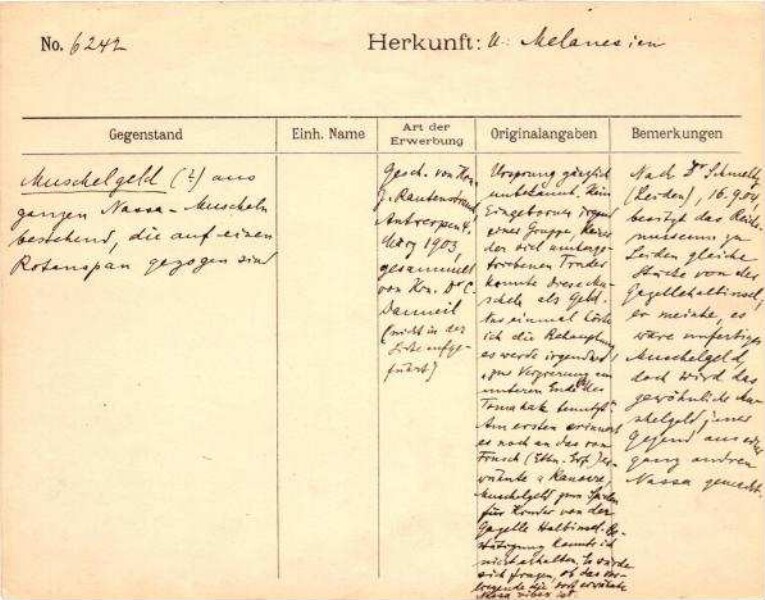 No. 6242
Herkunft: U: Melanesien
Gegenstand
Einh. Name
Art der
Erwerbung
Originalangaben
Bemerkungen
Muschelgeld (?) aus
ganzen Nassa-Muscheln
bestehend, die auf einen
Rotanspan gezogen sind
Gesch. von Hrn.
J. Rautenstrauch,
Antwerpen 4.
März 1903,
gesammelt
von Hrn. Dr C.
Danneil
(nicht in der
Liste aufge-
führt)
Ursprung gänzlich
unbekannt. Kein
Eingeborner irgend
einer Gruppe, keiner
der viel umherge-
triebenen Trader
kannte diese Mu-
scheln als Geld.
Nur einmal hörte
ich die Behauptung
es werde irgendwo
"zur Verzierung am
unteren Ende des
Tomahak benutzt."
Am ersten erinnert
es noch an das von
Finsch (Ethn. Erf.) er-
wähnte
Muschelgeld zum Spielen
für Kinder von der
Gazelle Halbinsel. Be-
stätigung konnte ich
nicht erhalten. Es würde
sich fragen, ob das vor-
liegende die dort erwähnte
Nassa vibex ist
Nach Dr Schmeltz
(Leiden), 16.9.04,
besitzt das Reichs-
museum zu
Leiden gleiche
Stücke von der
Gazellehalbinsel;
er meinte, es
wäre unfertiges
Muschelgeld,
doch wird das
gewöhnliche Mu-
schelgeld jener
Gegend aus einer
ganz andren
Nassa gemacht.